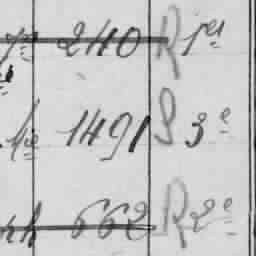 240 R 1er
Me 1491 S 3e
662 R 2e